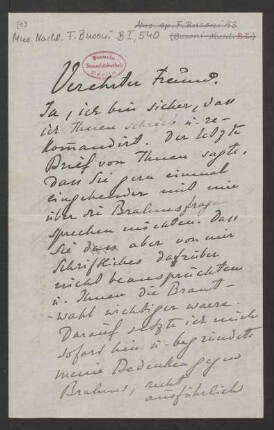 [1]
Mus. Nachl. F. Busoni B I, 540
Mus. ep. F. Busoni 53
(Busoni-Nachl. B I)
Deutsche
Staatsbibliothek
Berlin
Verehrter Freund.
Ja, ich bin sicher, dass
ich Ihnen schrieb u. re-
komandirt. Der letzte
Brief von Ihnen sagte,
dass Sie gern einmal
eingehender mit mir
über die Brahmsfrage
sprechen möchten. Dass
Sie dass aber von mir
Schriftliches darüber
nicht beanspruchten
u. Ihnen die Braut-
wahl wichtiger waere.
Darauf setzte ich mich
sofort hin u. begründete
meine Bedenken gegen
Brahms, recht
ausführlich